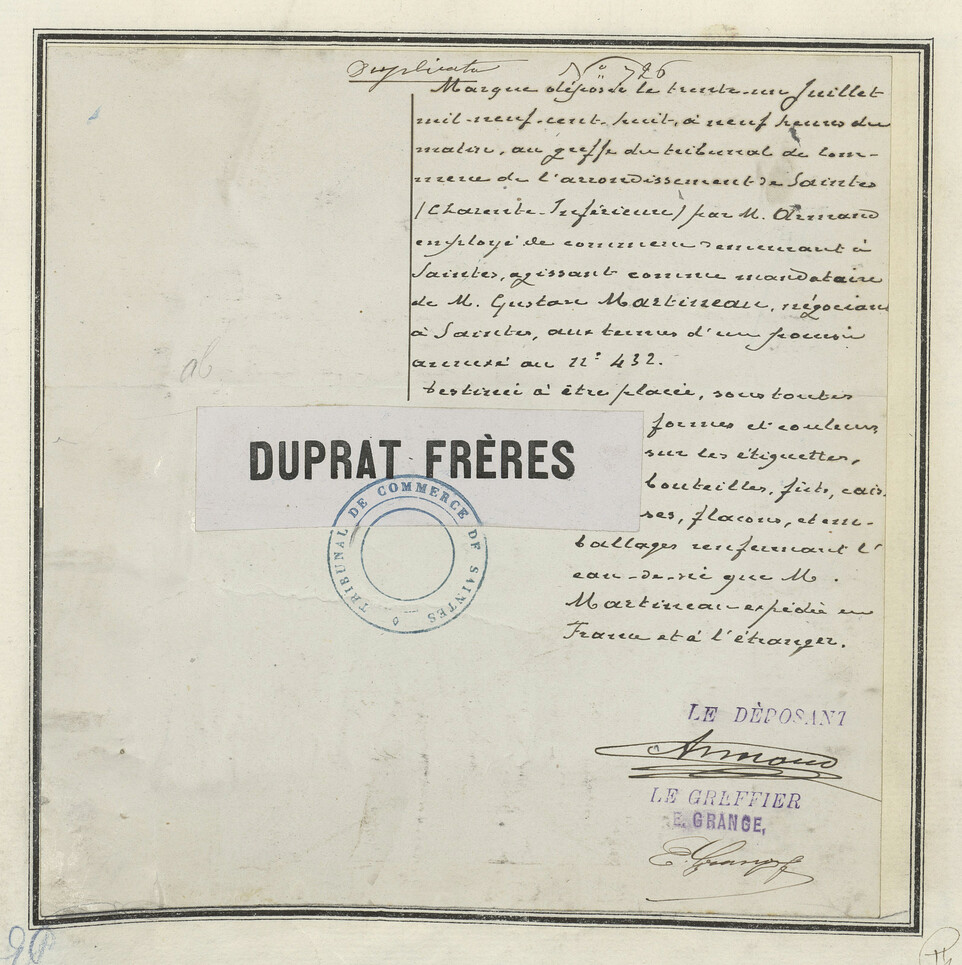 Duplicata N° 726
Marque déposée le trente-un Juillet
mil-neuf-cent-huit, à neuf heures du
matin, au greffe du tribunal de Com-
merce de l'arrondissement de Saintes
(Charente-Inférieure) par M. Armand
employé de commerce demeurant à
Saintes, agissant comme mandataire
de M. Gustave Martineau, négociant
à Saintes, aux termes d'un pouvoir
annexé au N° 432.
Destinée à être placée, sous toutes
formes et couleurs,
sur les étiquettes,
bouteilles, fûts, cais-
ses, flacons, et em-
ballages renfermant l'
eau-de-vie que M.
Martineau expédie en
France et à l'étranger.
DUPRAT FRÈRES
TRIBUNAL DE COMMERCE DE SAINTES
LE DÉPOSANT
Armand
LE GREFFIER
E. GRANGE,
E. Grange